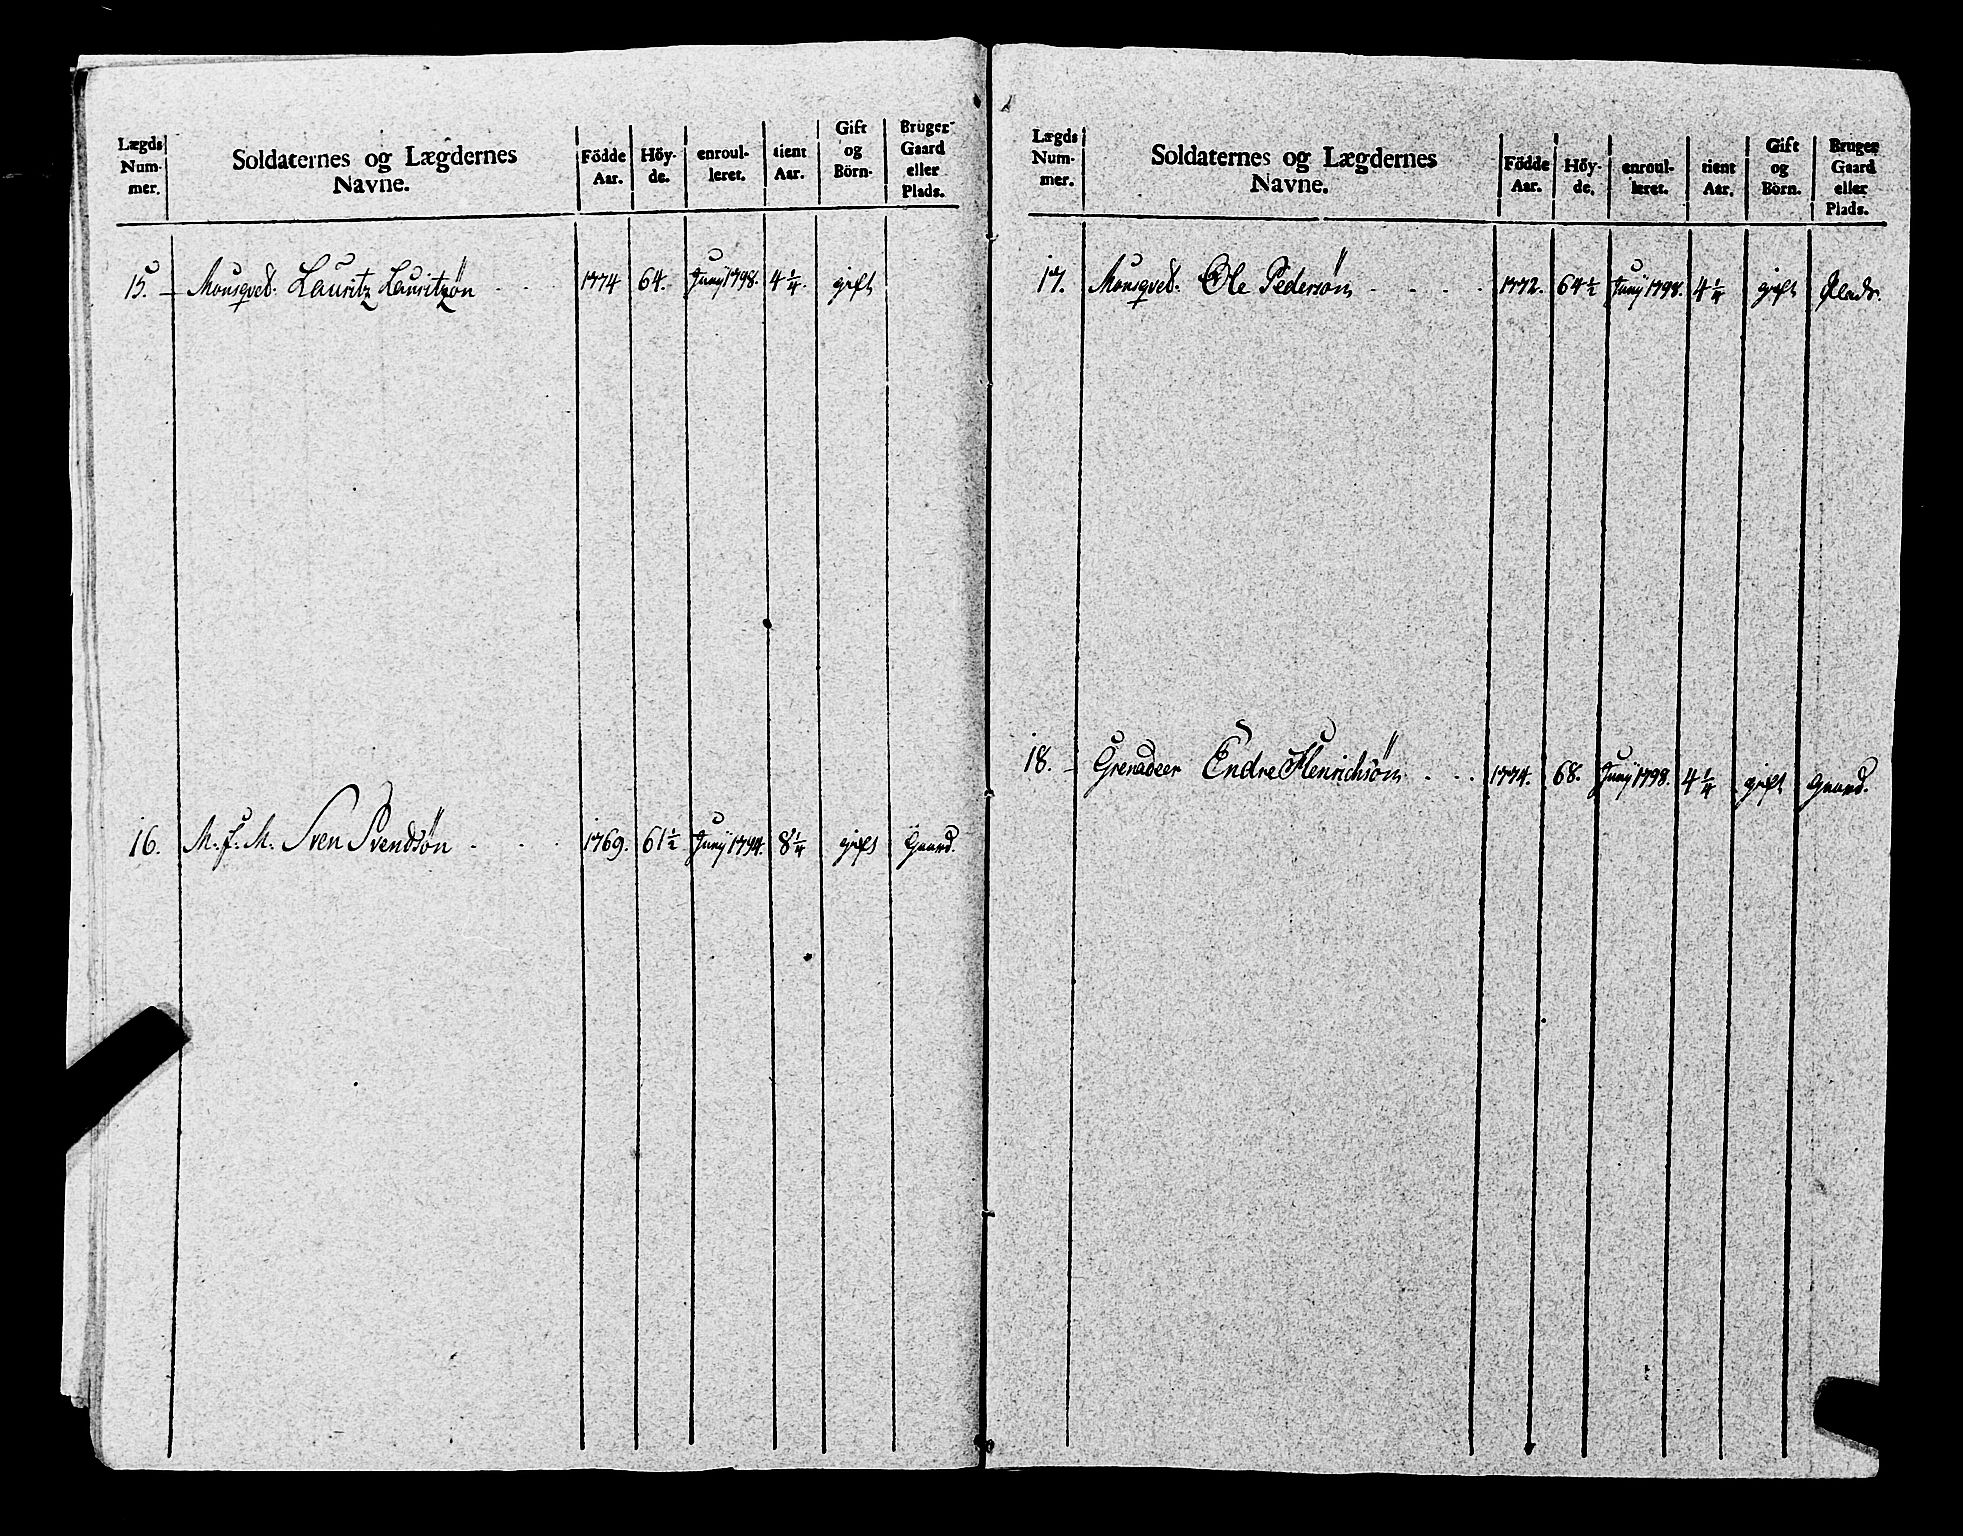 Lægds Num- mer. Soldaternes og Lægdernes Navne. Födde Aar. Höy- de. enroul- leret. tient Aar. Gift og Börn. Bruger Gaard eller Plads.
15. Musqvet. Lauritz Lauritzøn 1774 64. Junj 1798. 4 1/4. gift
16. M. f. M. Sven Svendsøn 1769. 61 1/2 Junj 1794. 8 1/4 gift Gaard.
Lægds Num- mer. Soldaternes og Lægdernes Navne. Födde Aar. Höy- de. enroul- leret. tient Aar. Gift og Börn. Bruger Gaard eller Plads.
17. Musqvet. Ole Pedersøn 1772. 64 1/2 Junj 1798. 4 1/4 gift Plads.
18. Grenadeer Endre Henrichsøn 1774. 68. Junj 1798. 4 1/4 gift Gaard.